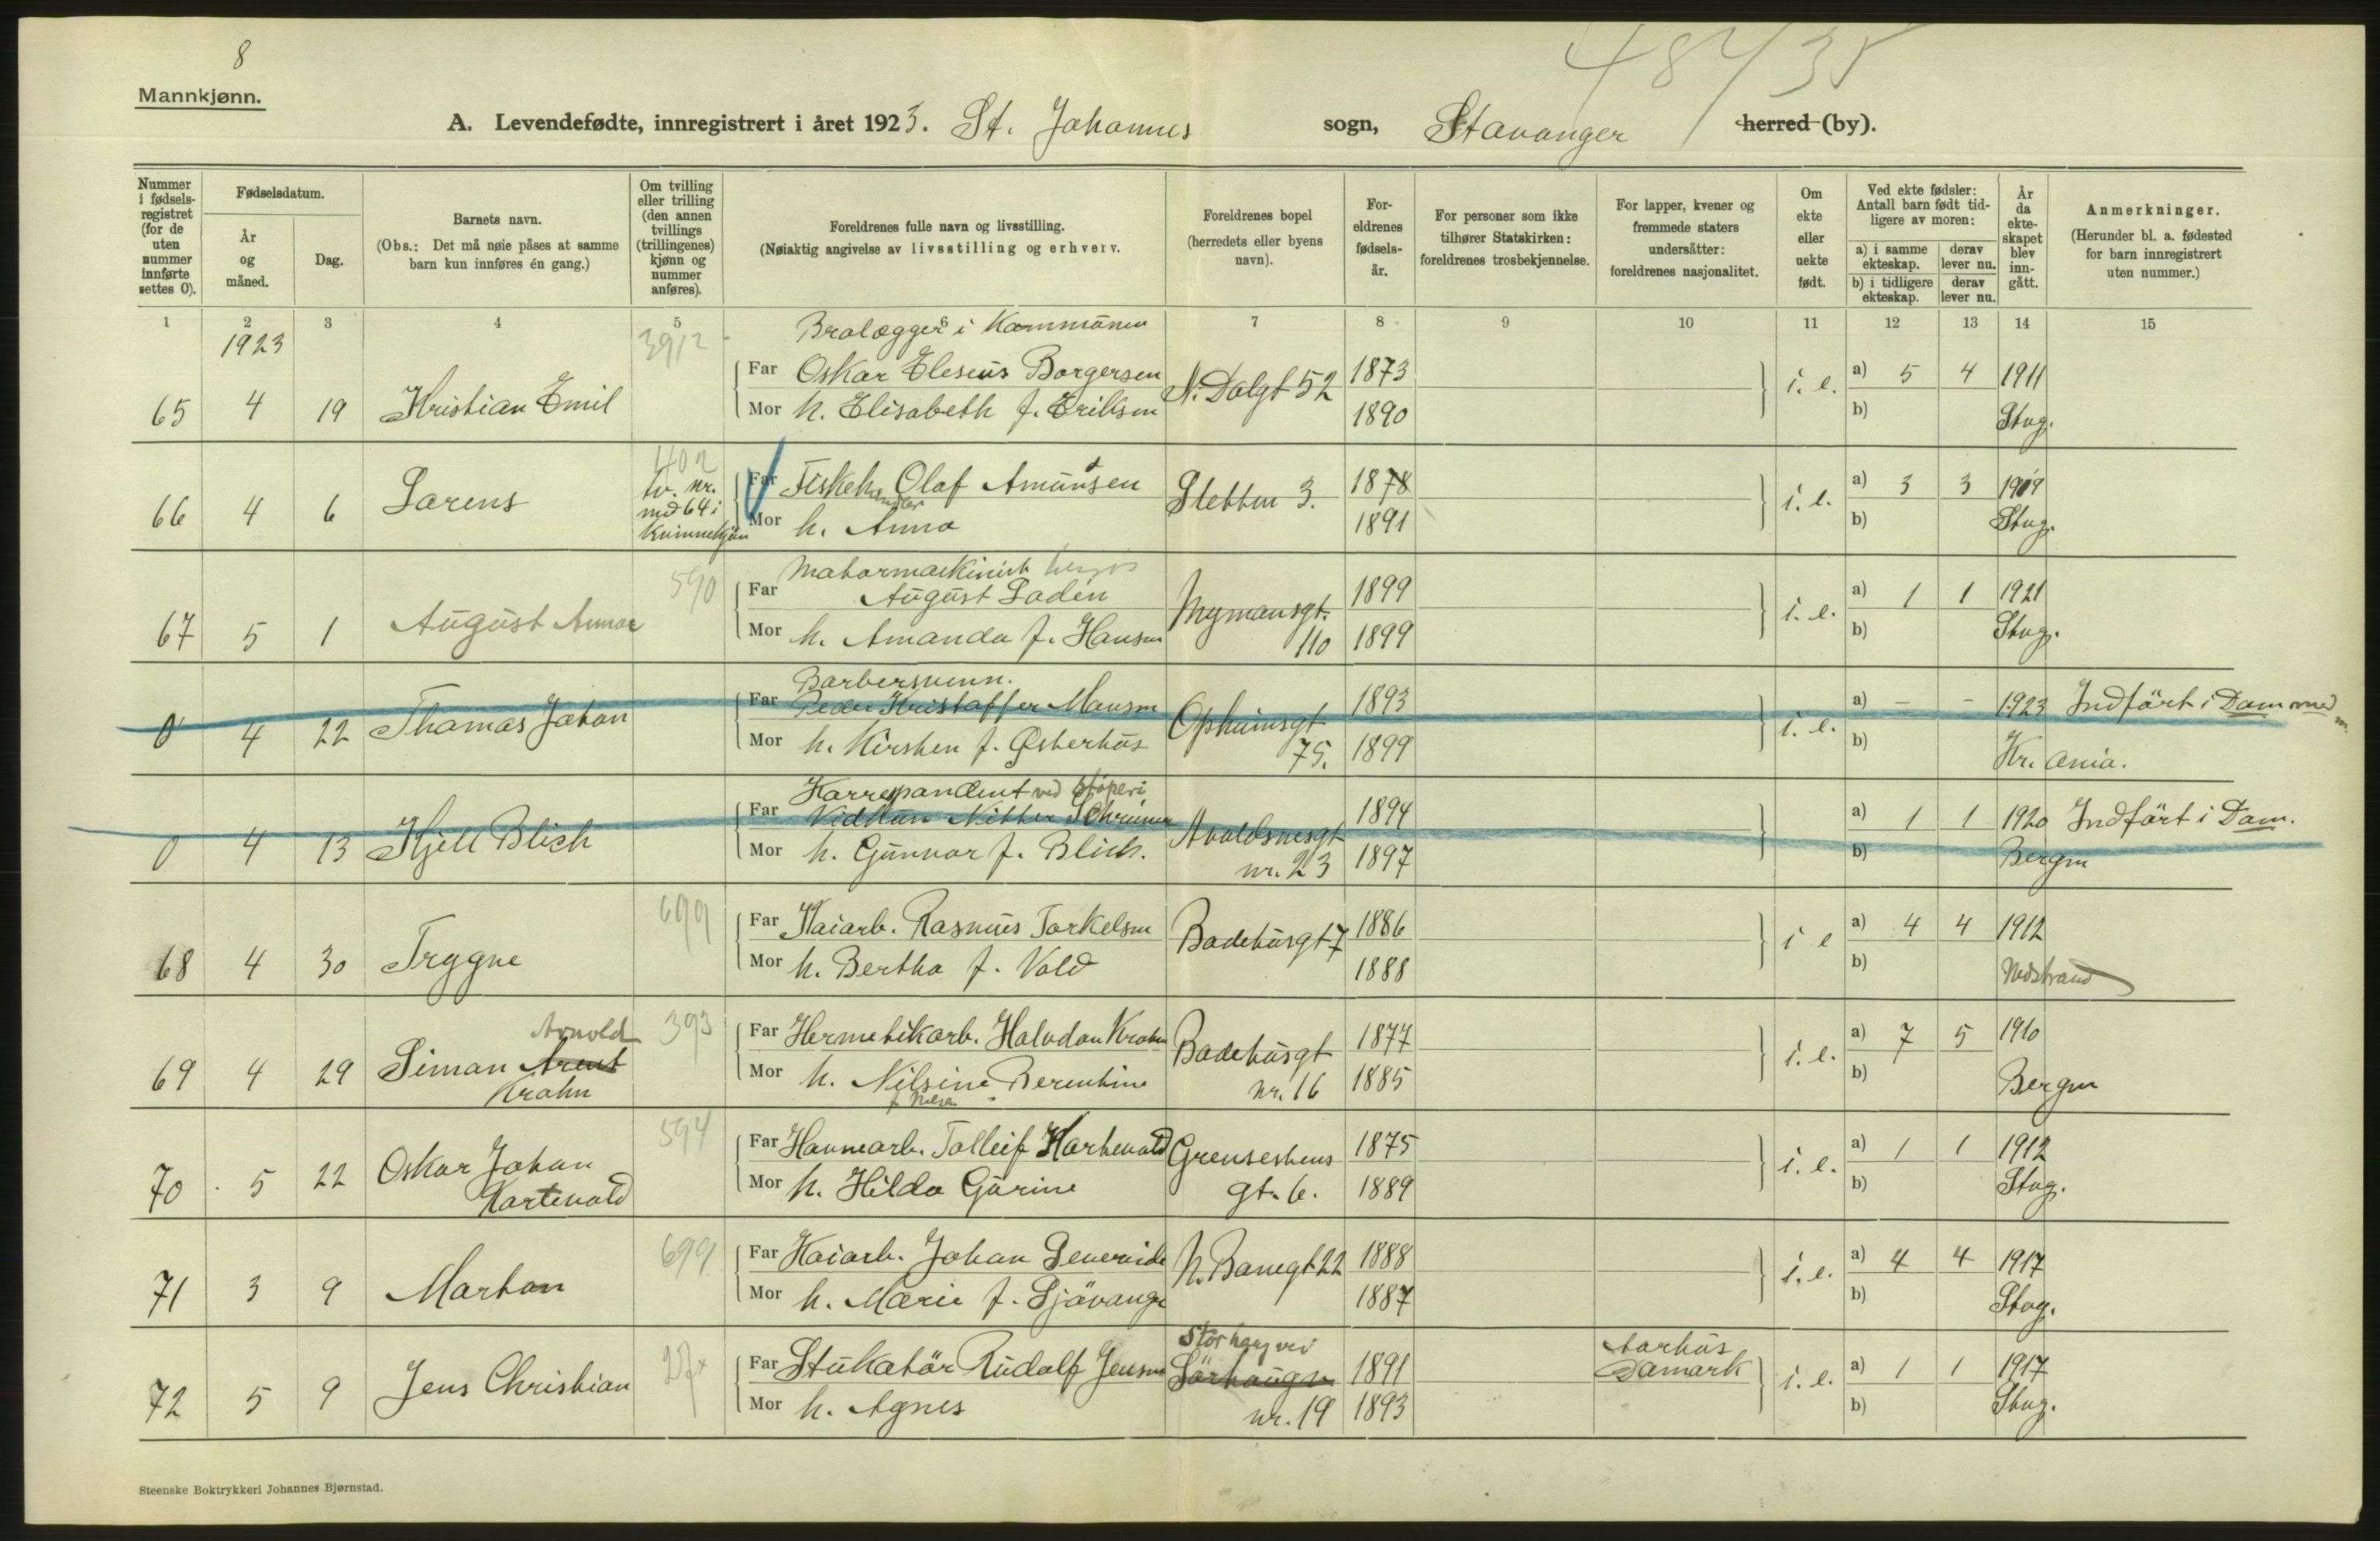 8
48/35
Mannkjønn.
A. Levendefødte, innregistrert i året 1923. St. Johannes sogn, Stavanger herred (by).
Nummer i fødsels-registret (for de uten nummer innførte settes 0).
Fødselsdatum.
År og måned.
Dag.
Barnets navn.
(Obs.: Det må nøie påses at samme barn kun innføres én gang.)
Om tvilling eller trilling (den annen tvillings (trillingenes) kjønn og nummer anføres).
Foreldrenes fulle navn og livsstilling.
(Nøiaktig angivelse av livsstilling og erhverv.
Foreldrenes bopel (herredets eller byens navn).
For-eldrenes fødsels-år.
For personer som ikke tilhører Statskirken: foreldrenes trosbekjennelse.
For lapper, kvener og fremmede staters undersåtter: foreldrenes nasjonalitet.
Om ekte eller uekte født.
Ved ekte fødsler: Antall barn født tid-ligere av moren:
a) i samme ekteskap. derav lever nu.
b) i tidligere ekteskap. derav lever nu.
År da ekte-skapet blev inn-gått.
Anmerkninger.
(Herunder bl. a. fødested for barn innregistrert uten nummer.)
1 2 3 4 5 6 7 8 9 10 11 12 13 14 15
1923 3912 Brolægger i Kommunen
Far Oskar Eleseus Borgersen N. Dalgt 52 1873 i. e. a) 5 4 1911
65 4 19 Kristian Emil Mor h. Elisabeth f. Eriksen 1890 b) Stvg.
402
66 4 6 Sørens tv. nr. med 64 i Kvinnekjøn Far Fiskehandler Olaf Amundsen Sletten 3. 1878 i. e. a) 3 3 1909
Mor h. Anna 1891 b) Stvg.
590 Motormaskinist
Far August Ladén Nymansgt. 110 1899 i. e. a) 1 1 1921
67 5 1 August Annar Mor h. Amanda f. Hansen 1899 b) Stvg.
Barbersvenn.
0 4 22 Thomas Johan Far Peder Kristoffer Monsen Opheimsgt 75. 1893 i. e. a) - - 1923 Indført i Dommed
Mor h. Kirsten f. Østerhus 1899 b) Kr. ania.
Korrespondent ved støperi
0 4 13 Kjell Blich Far Vidkun Nitter Schreiner Avaldsnesgt nr. 23 1894 a) 1 1 1920 Indført i Dom.
Mor h. Gunnvor f. Blich. 1897 b) Bergen
699
68 4 30 Trygve Far Kaiarb. Rasmus Torkelsen Badehusgt 7 1886 i e a) 4 4 1912
Mor h. Bertha f. Vold 1888 b) Nedstrand
393
69 4 29 Simon Arent Arnold Krohn Far Hermetikarb. Halvdan Krohn Badehusgt nr. 16 1877 i. e. a) 7 5 1910
Mor h. Nilsine Berentine f. Nilsen 1885 b) Bergen
594
70 5 22 Oskar Johan Kartevold Far Havnearb. Tolleif Kartevold Grensestens gt. 6. 1875 i. e. a) 1 1 1912
Mor h. Hilda Gurine 1889 b) Stvg.
699
71 3 9 Morton Far Kaiarb. Johan Severeide N. Banegt 22 1888 i. e. a) 4 4 1917
Mor h. Marie f. Sjøvange 1887 b) Stvg.
Storhaugvei
72 5 9 Jens Christian Far Stukatør Rudolf Jensen Sørhaugv nr. 19 1891 Aarhus Damark i. e. a) 1 1 1917
Mor h. Agnes 1893 b) Stvg.
Steenske Boktrykkeri Johannes Bjørnstad.